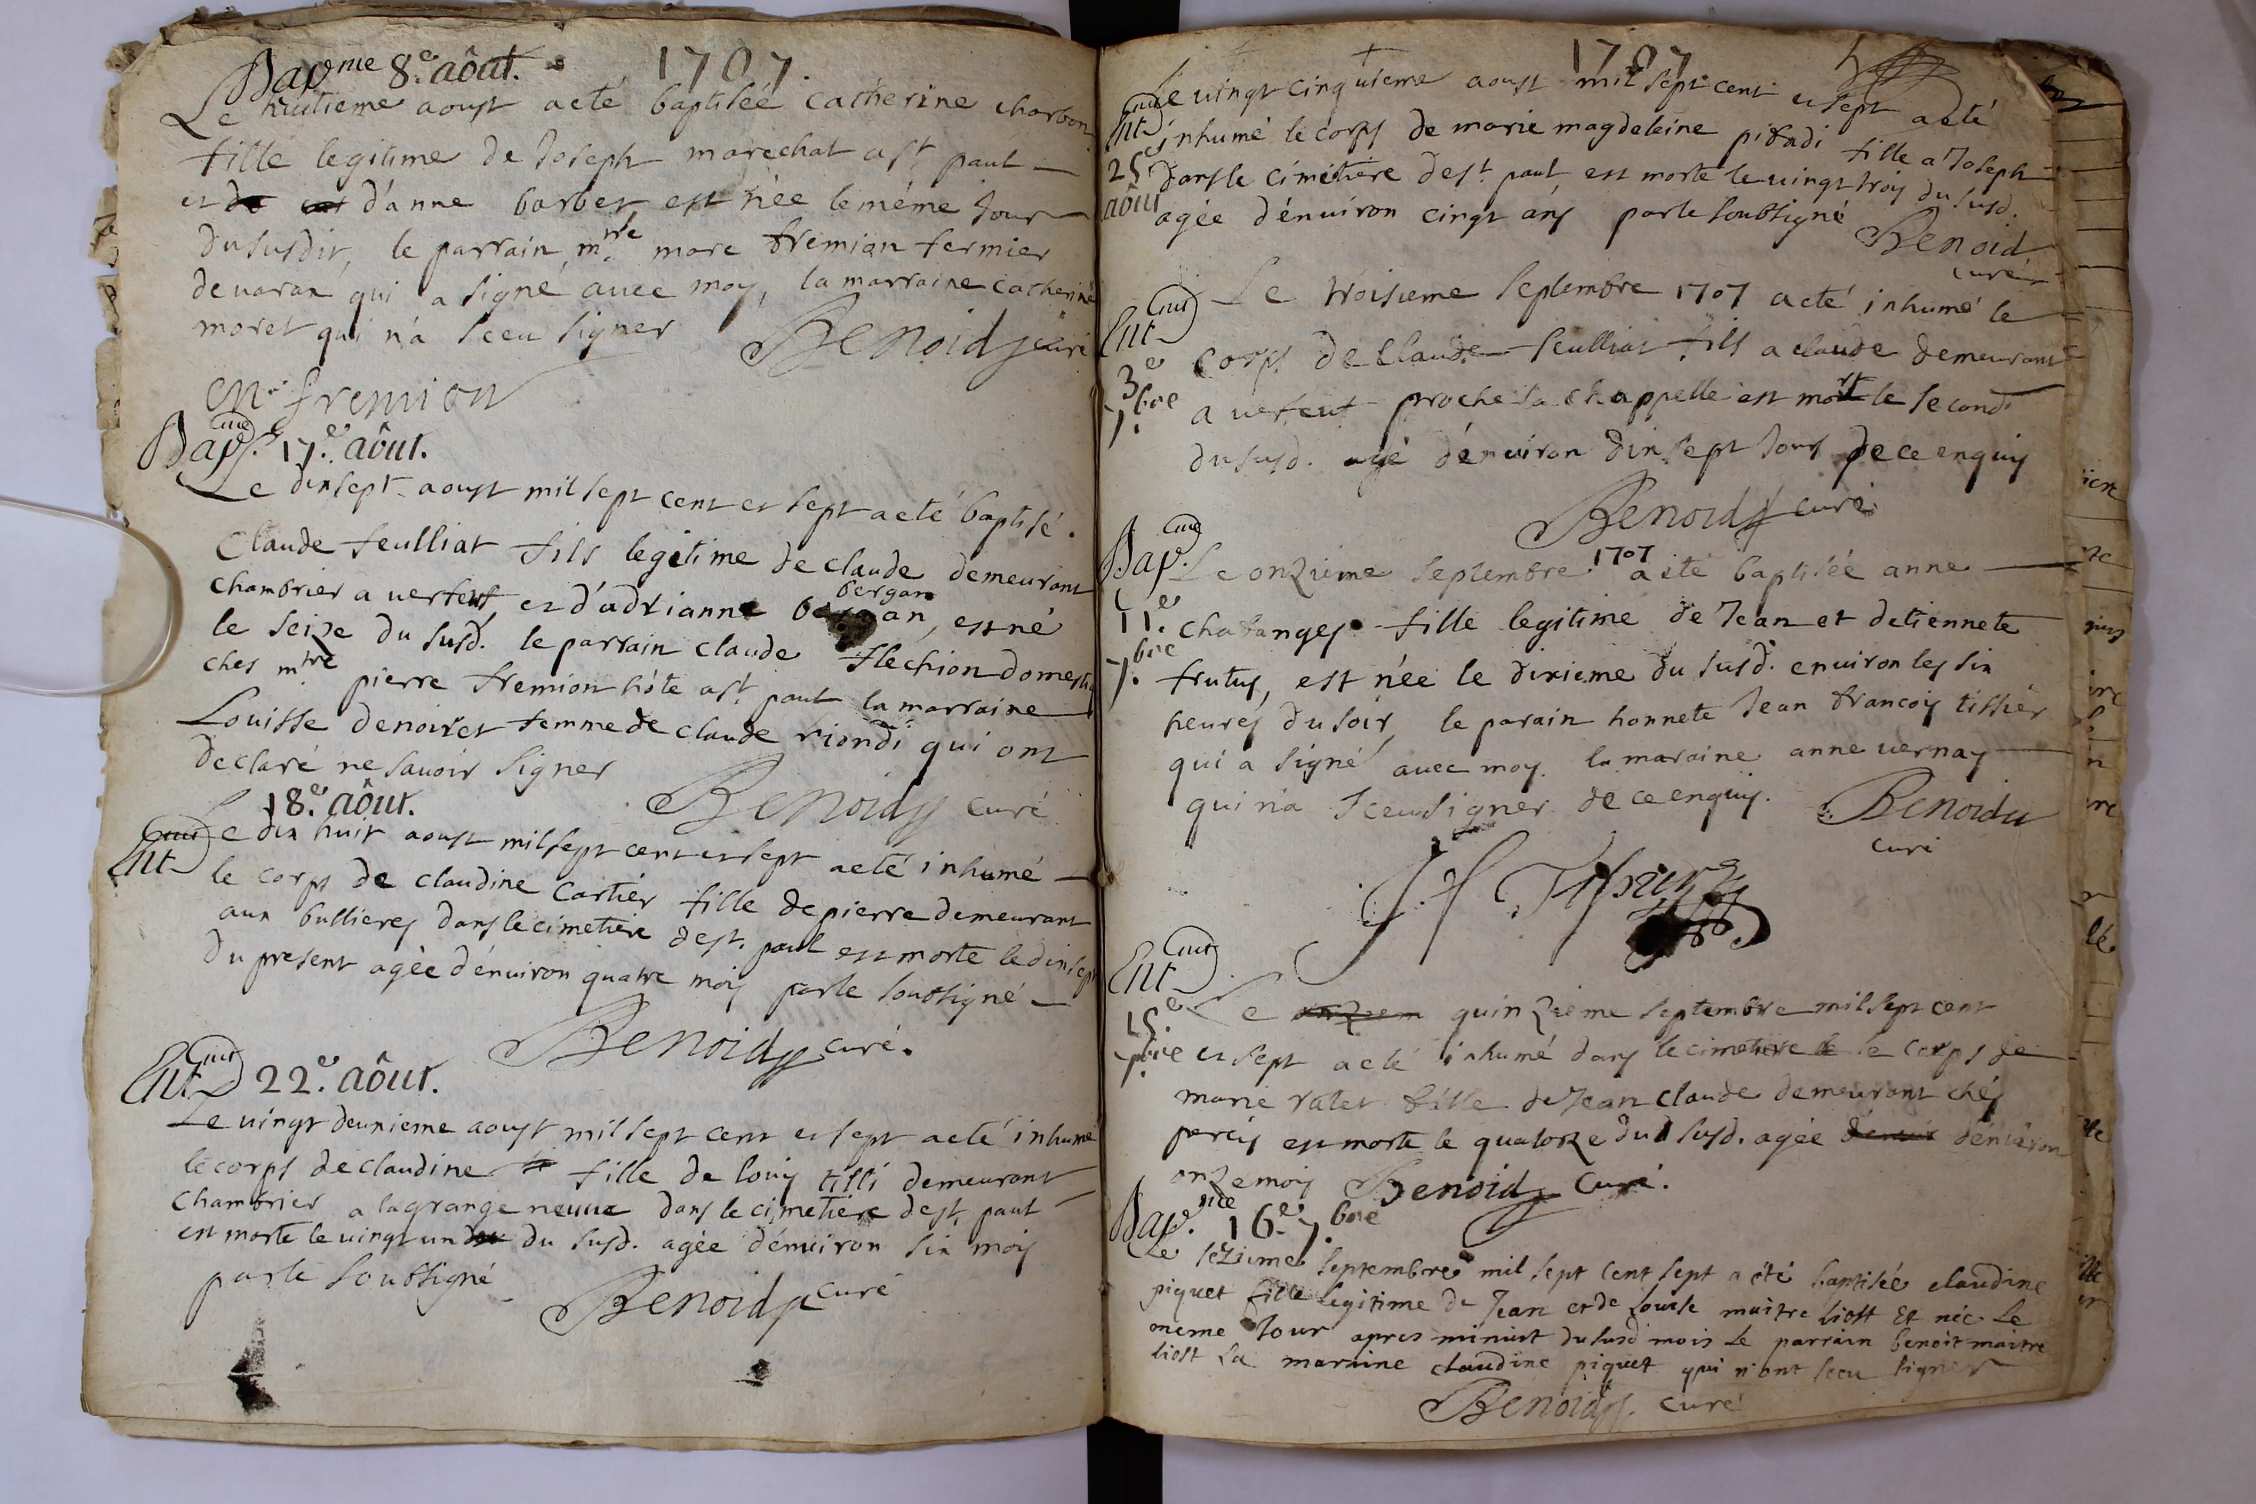 1707.
Bap.me 8.e aôut.
Le huitieme aoust a eté baptisée catherine charbon
fille legitime de Joseph marechal a st paul
et d'anne barbet est née le même Jour
du susdit, le parrain, m.tre marc fremion fermier
de varax qui a signé avec moy, la marraine catherine
moret qui n'a sceu signer Benoid curé
fremion
Bap. 17.e aôut.
Le dixsept aoust mil sept cent et sept a eté baptisé.
Claude feulliat fils legitime de claude demeurant
chambrier a verfeut, et d'adrianne bergan, est né
bergan
le seize du susd. le parrain claude flechion domestiq
ches mtre pierre fremion hôte a st paul la marraine
Louisse denoiret femme de claude riondi qui ont
declaré ne savoir signer Benoid curé
18.e aôut.
Ent
Le dix huit aoust mil sept cent et sept a eté inhumé
le corps de claudine Cartier fille de pierre demeurant
aux bullieres dans le cimetiere de st. paul est morte le dixsept
du present agée d'énviron quatre mois par le soubsigné
Benoid curé.
Ent 22.e aôut.
Le vingt deuxieme aoust mil sept cent et sept a eté inhumé
le corps de claudine fille de louis tissi demeurant
chambrier a la grange neuve dans le cimetiere de st. paul
est morte le vingt un du susd. agée d'énviron six mois
par le soubsigné Benoid curé
1707
Ent
25 aôut
Le vingt cinquieme aoust mil sept cent et sept a eté
inhumé le corps de marie magdeleine pitadi fille a Joseph
dans le cimetiere de st. paul est morte le vingt trois du susd.
agée d'énviron cinqt ans par le soubsigné Benoid
curé
Ent
3.e
7.bre
Le troisieme septembre 1707 a eté inhumé le
corps de claude feulliat fils a claude demeurant
a verfeut proche la chappelle est mort le second
du susd. agé d'énviron dixsept Jours de ce enquis
Benoid curé
Bap.
11.e
7.bre
Le onzieme septembre 1707 a eté baptisée anne
chatanges fille legitime de Jean et d'etiennete
frutus, est née le dixieme du susd. environ les six
heures du soir, le parain honnete Jean francois tissier
qui a signé avec moy. la maraine anne vernay
qui n'a sceu signer de ce enquis. Benoid
curé
J f Tissier
Ent
15.e
7.bre
Le quinzieme septembre mil sept cent
et sept a eté inhumé dans le cimetiere le corps de
marie ratet fille de Jean claude demeurant chés
percis est morte le quatorze du susd. agée d'énviron
onze mois Benoid curé.
Bap. 16.e 7.bre
Le sezieme septembre mil sept cent sept a été baptisée claudine
piquet fille legitime de Jean et de Louise maitre liost Et née Le
meme Jour apres minuit du susd mois Le parrain benoit maitre
liost La maraine claudine piquet qui n'ont sceu signer
Benoid curé